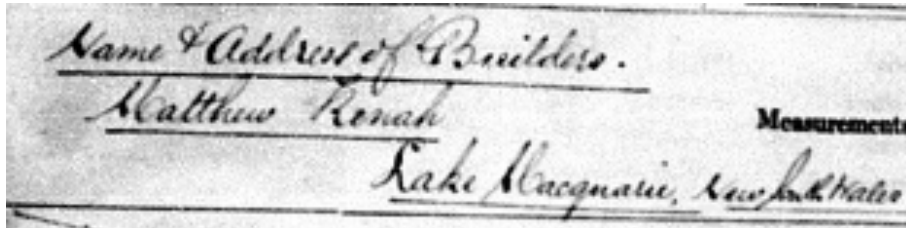 Name & Address of Builders.
Matthew Kenah
Measurements
Lake Macquarie, New South Wales